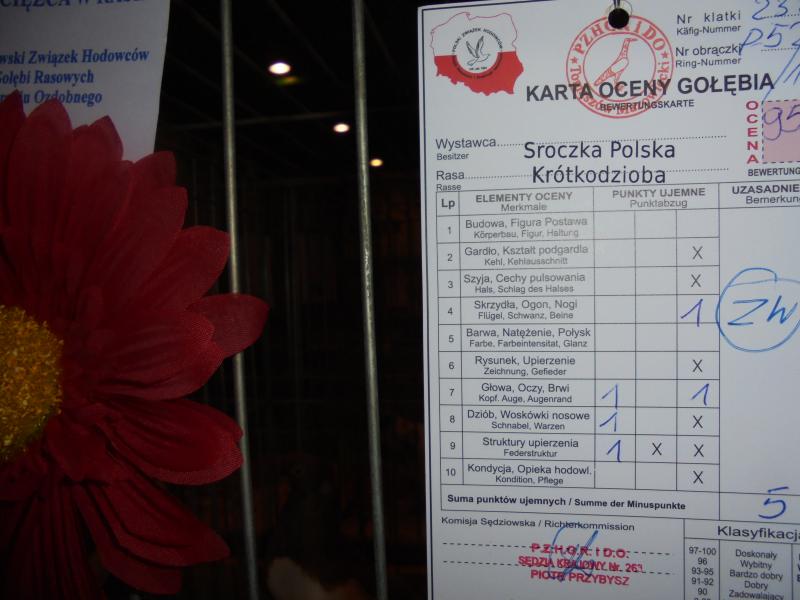 CIĘZCA W RASIE
wski Związek Hodowców
Gołębi Rasowych
Ozdobnego
Nr klatki
Käfig-Nummer
Nr obrączki
Ring-Nummer
P.Z.H.G.R. I D.O.
KARTA OCENY GOŁĘBIA
BEWERTUNGSKARTE
OCENA
95
BEWERTUNG
Wystawca
Besitzer
Sroczka Polska
Rasa
Rasse
Krótkodzioba
Lp
ELEMENTY OCENY
Merkmale
PUNKTY UJEMNE
Punktabzug
UZASADNIE
Bemerkung
1 Budowa, Figura Postawa
Körperbau, Figur, Haltung
2 Gardło, Kształt podgardla X
Kehl, Kehlausschnitt
3 Szyja, Cechy pulsowania X
Hals, Schlag des Halses
4 Skrzydła, Ogon, Nogi 1
Flügel, Schwanz, Beine
ZW
5 Barwa, Natężenie, Połysk
Farbe, Farbeintensitat, Glanz
6 Rysunek, Upierzenie X
Zeichnung, Gefieder
7 Głowa, Oczy, Brwi 1 1
Kopf. Auge, Augenrand
8 Dziób, Woskówki nosowe 1 X
Schnabel, Warzen
9 Struktury upierzenia 1 X X
Federstruktur
10 Kondycja, Opieka hodowl. X
Kondition, Pflege
Suma punktów ujemnych / Summe der Minuspunkte 5
Komisja Sędziowska / Richterkommission
P.Z.H.G.R. I D.O.
SĘDZIA KRAJOWY Nr. 263
PIOTR PRZYBYSZ
Klasyfikacja
97-100 Doskonały
96 Wybitny
93-95 Bardzo dobry
91-92 Dobry
90 Zadowalający